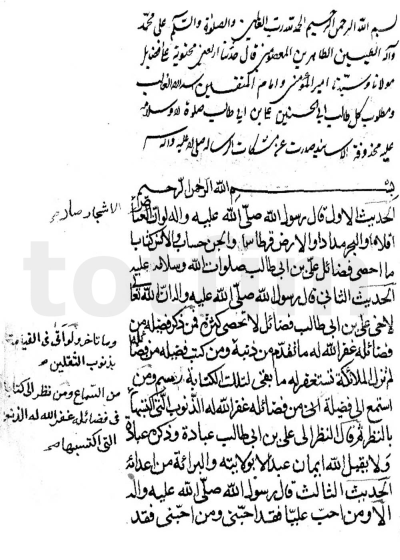 بسم الله الرحمن الرحيم الحمد لله رب العالمين والصلوة والسلم على محمد
وآله الطيبين الطاهرين المعصومين قال هذا اربعين محتوية على فضايل
مولانا وسيدنا امير المؤمنين وامام المتقين اسد الله الغالب
ومطلوب كل طالب ابى الحسنين على بن ابى طالب صلوة الله وسلامه
عليه محذوفة الاسانيد صدرت عن مشكات الرسالة صلى الله عليه وآله
بسم الله الرحمن الرحيم
الحديث الاول قال رسول الله صلى الله عليه واله لو ان الغياض
اقلام والبحر مداد والارض قرطاس والجن حساب والانس كتاب
ما احصى فضائل على بن ابى طالب صلوات الله وسلامه عليه
الحديث الثانى قال رسول الله صلى الله عليه واله ان الله تعالى
لاخى على بن ابى طالب فضائل لا تحصى كثرة فمن ذكر فضيلة من
فضائله غفر الله له ما تقدم من ذنبه ومن كتب فضيلة من فضائله
لم تزل الملائكة تستغفر له ما بقى لتلك الكتابة رسم ومن
استمع الى فضيلة من فضائله غفر الله له الذنوب التى اكتسبها
بالنظر ثم قال النظر الى على بن ابى طالب عبادة وذكره عبادة
ولا يقبل الله ايمان عبد الا بولايته والبرائة من اعدائه
الحديث الثالث قال رسول الله صلى الله عليه واله
الا ومن احب عليا فقد احبنى ومن احبنى فقد
الاشجار صادح
وما تأخر ولو اتى فى القيامة
بذنوب الثقلين
من السماع ومن نظر الى كتابة
فى فضائله غفر الله له الذنوب
التى اكتسبها